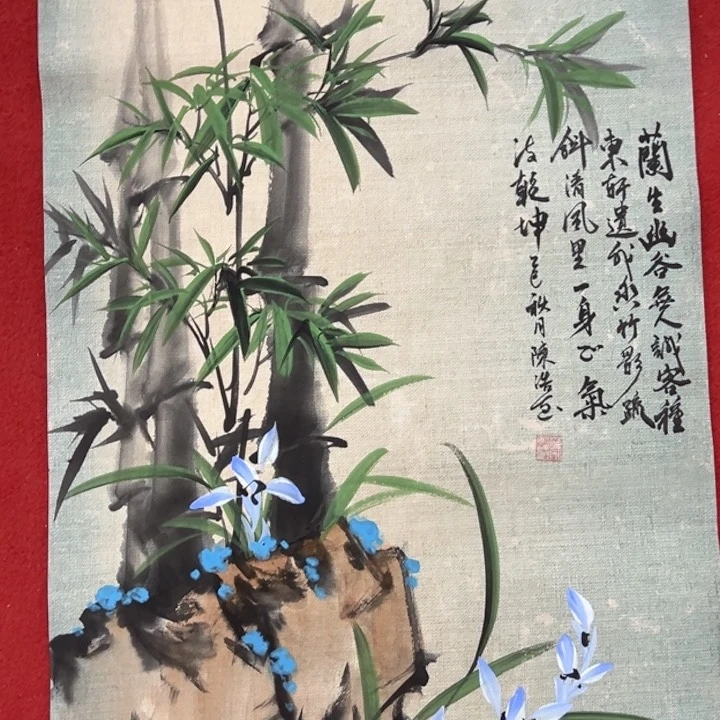 蘭生幽谷無人識客種
東軒遺我香竹影疏
斜清風里一身正氣
法乾坤乙巳秋月陳浩画